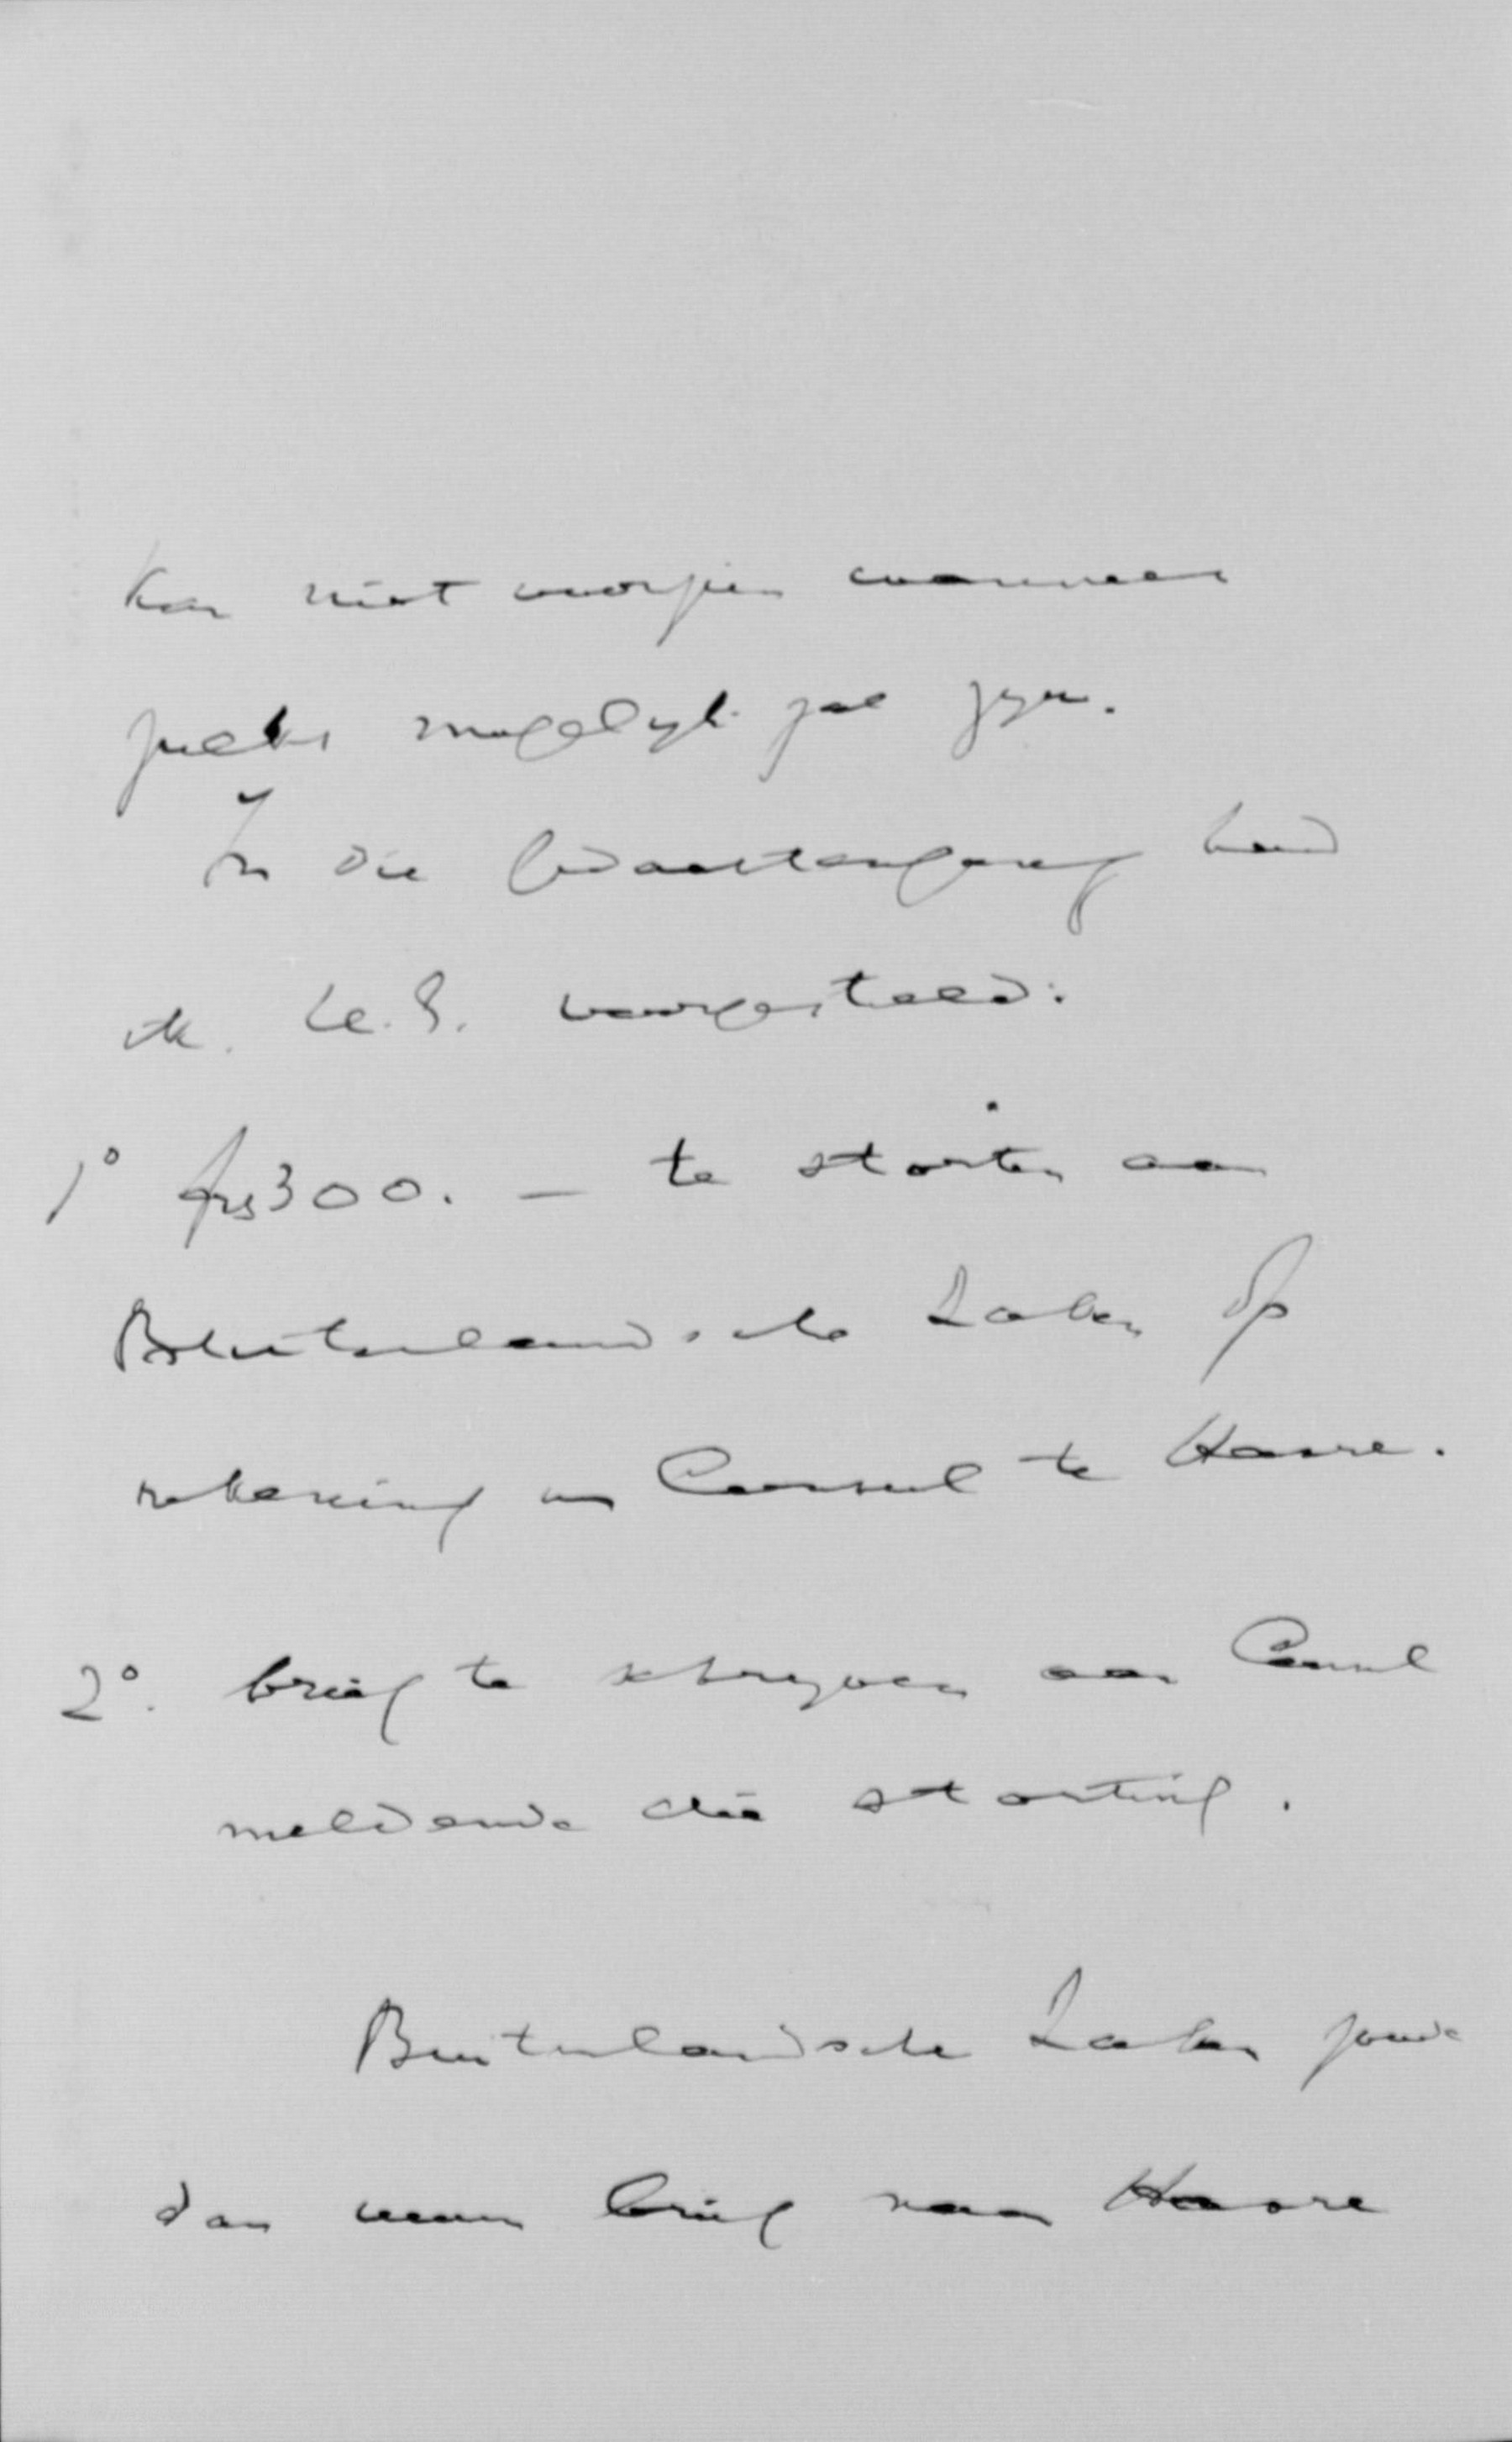 kan niet voorzien wanneer
zulks mogelyk zal zyn.
In die gedachtengang had
ik U.E. voorgesteld:
1° frs 300. — te storten aan
Buitenlandsche Zaken op
rekening van Consul te Havre.
2°. brief te schryven aan Consul
meldende die storting.
Buitenlandsche Zaken zoude
dan uwen brief naar Havre